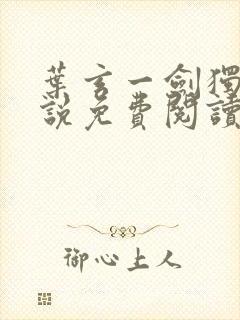 葉玄一劍獨
說免費閱讀
御心上人